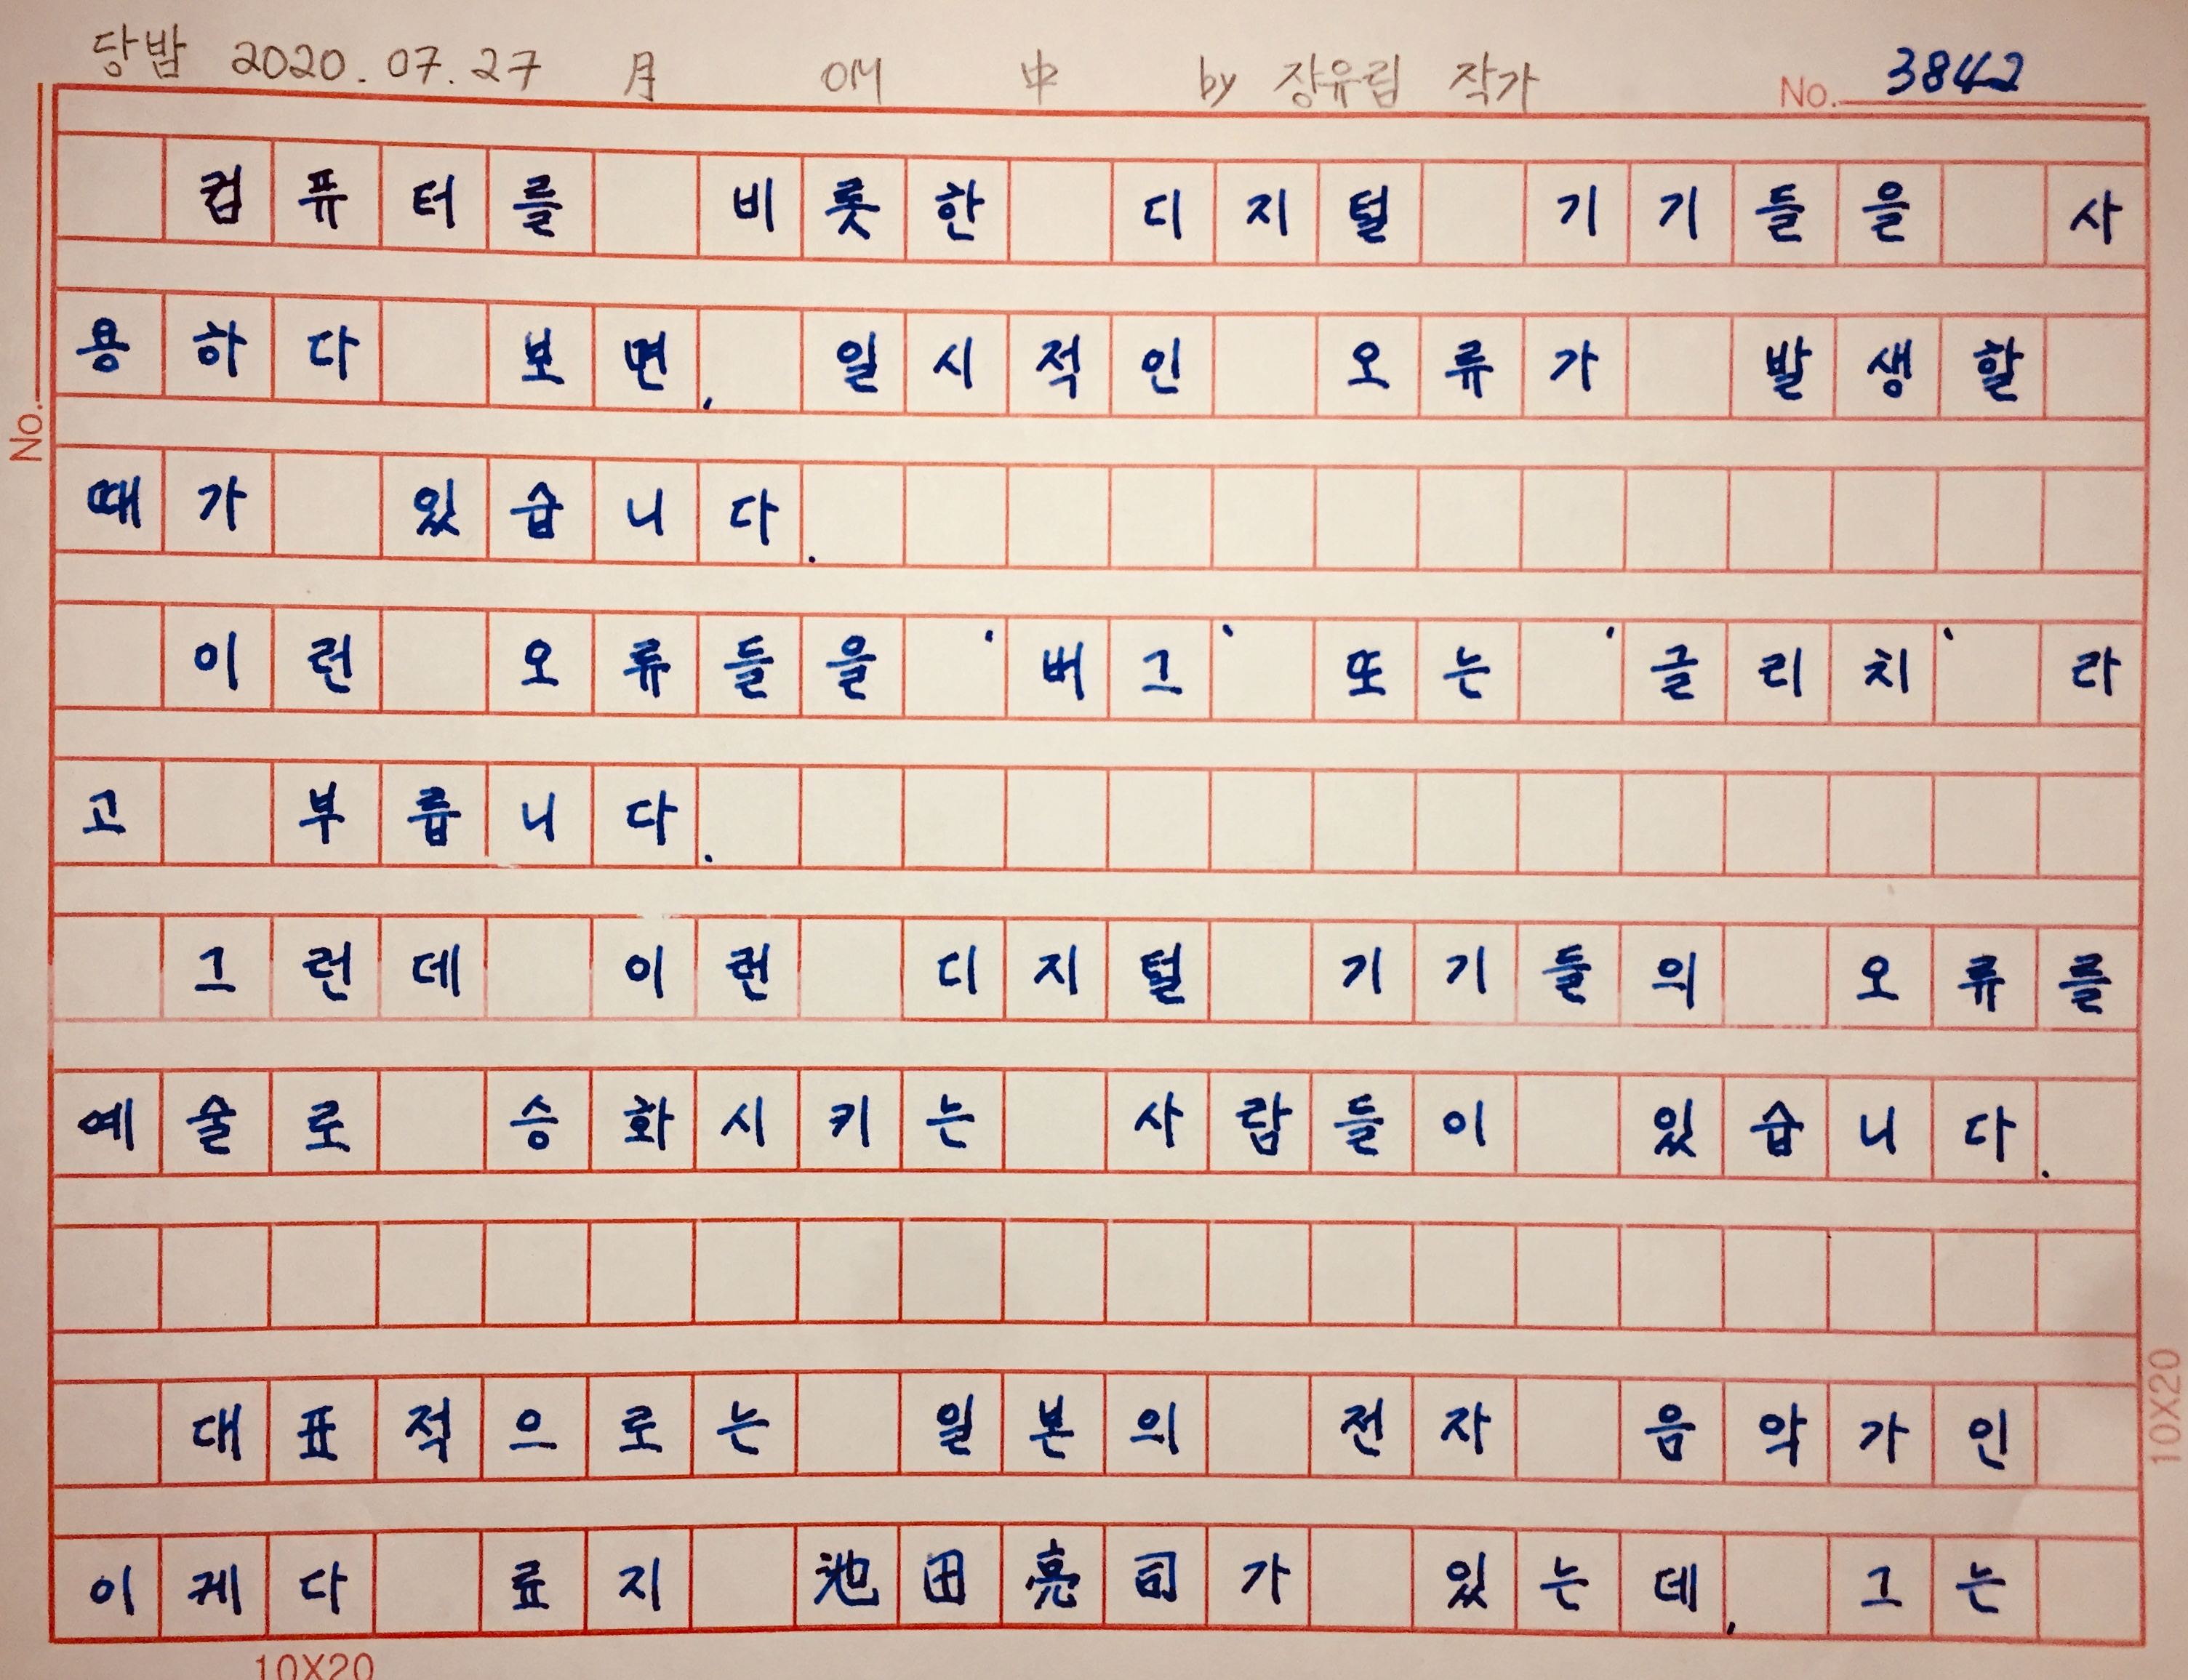 당밤 2020.07.27 月 OM 中 by 장유림 작가 No. 3842
컴퓨터를 비롯한 디지털 기기들을 사
용하다 보면, 일시적인 오류가 발생할
No.
때가 있습니다.
이런 오류들을 '버그' 또는 '글리치' 라
고 부릅니다.
그런데 이런 디지털 기기들의 오류를
예술로 승화시키는 사람들이 있습니다.
대표적으로는 일본의 전자 음악가인
10X20
이케다 료지 池田亮司가 있는데, 그는
10X20